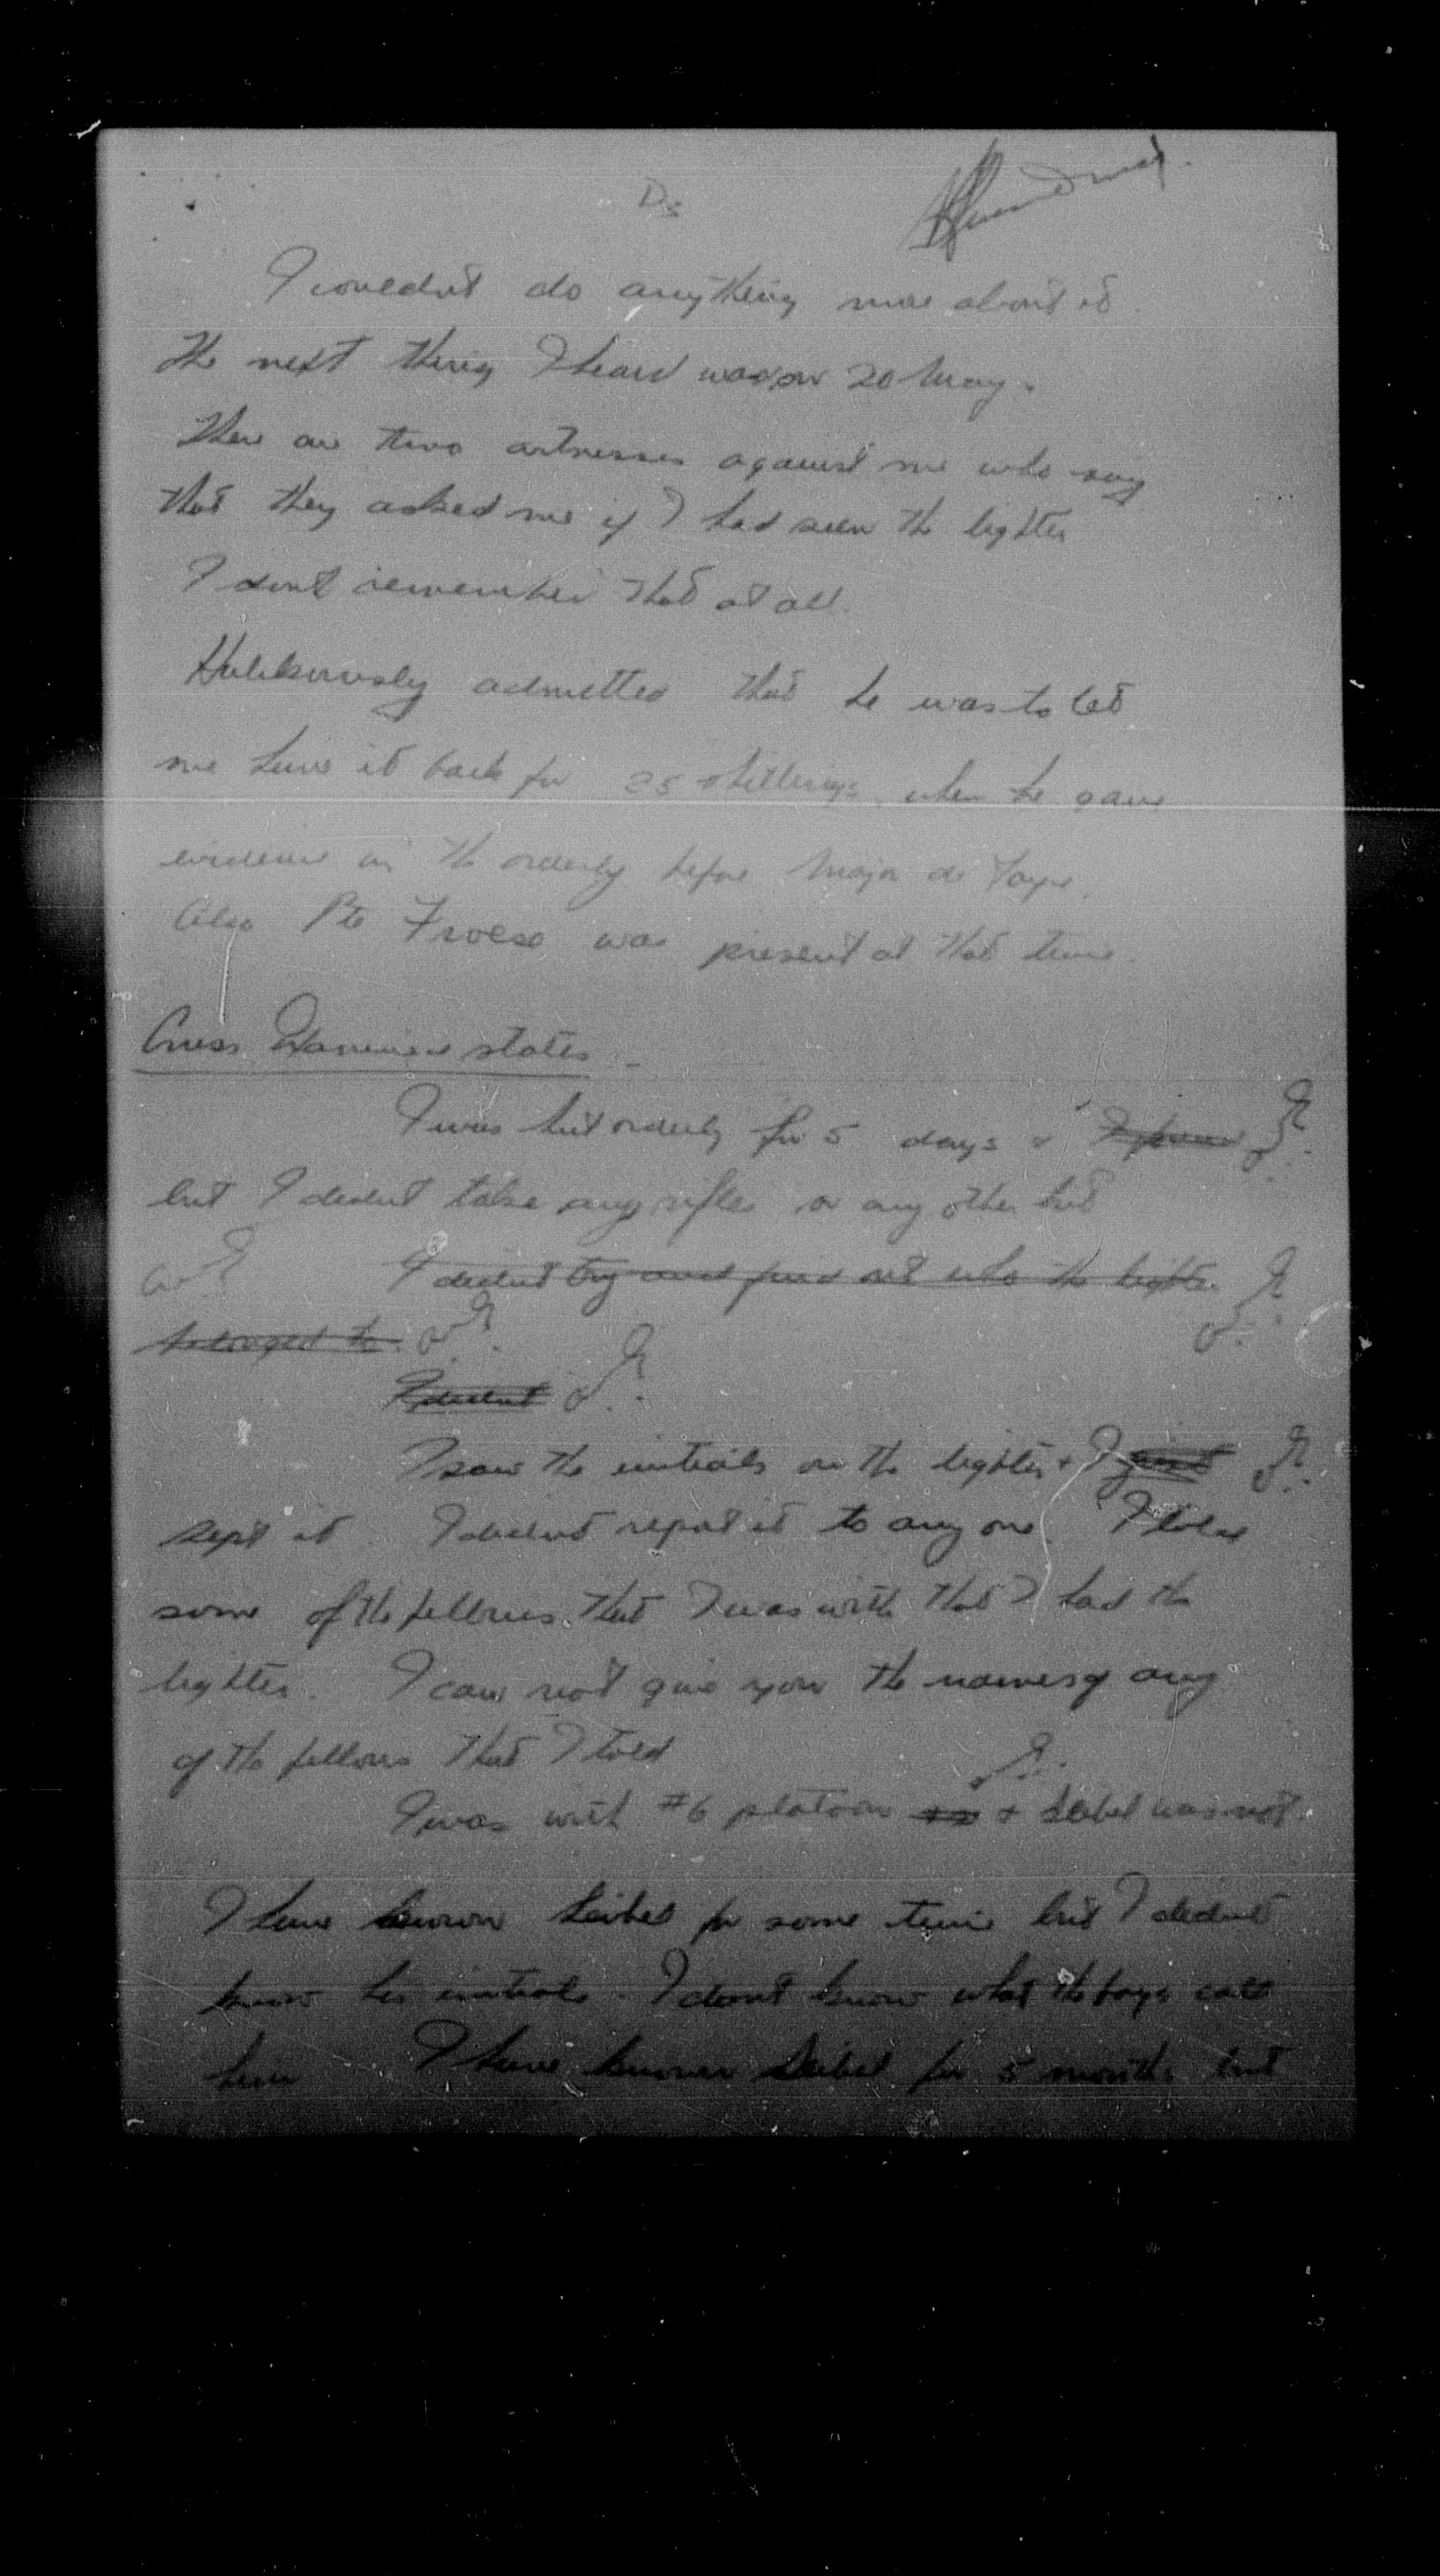 D3
I couldn't do anything more about it.
The next thing I heard was on 20 May.
There are two witnesses against me who say
that they asked me if I had seen the lighter
I dont remember that at all.
admitted that he was to let
me have it back for 25 shillings when he gave
evidence in the orderly before Major de
Also Pte Froese was present at that time.
Cross Examined states
I was hut orderly for 5 days &
but I didnt take any rifles or any other kit
I didnt try and find out who the lighter
belonged to.
I didnt
I saw the initials on the lighter & I
kept it. I didnt report it to any one. I told
some of the fellows that I was with that I had the
lighter. I can not give you the names of any
of the fellows that I told
I was with #6 platoon & Leibel was not.
I have known Leibel for some time but I didnt
know his initials. I dont know what the boys call
him I have known Leibel for 5 months but